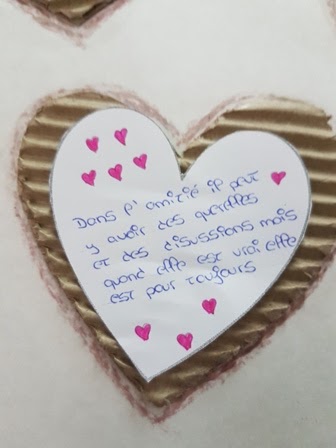 Dans l'amitié il peut
y avoir des querelles
et des disussions mais
quand elle est vrai elle
est pour toujours